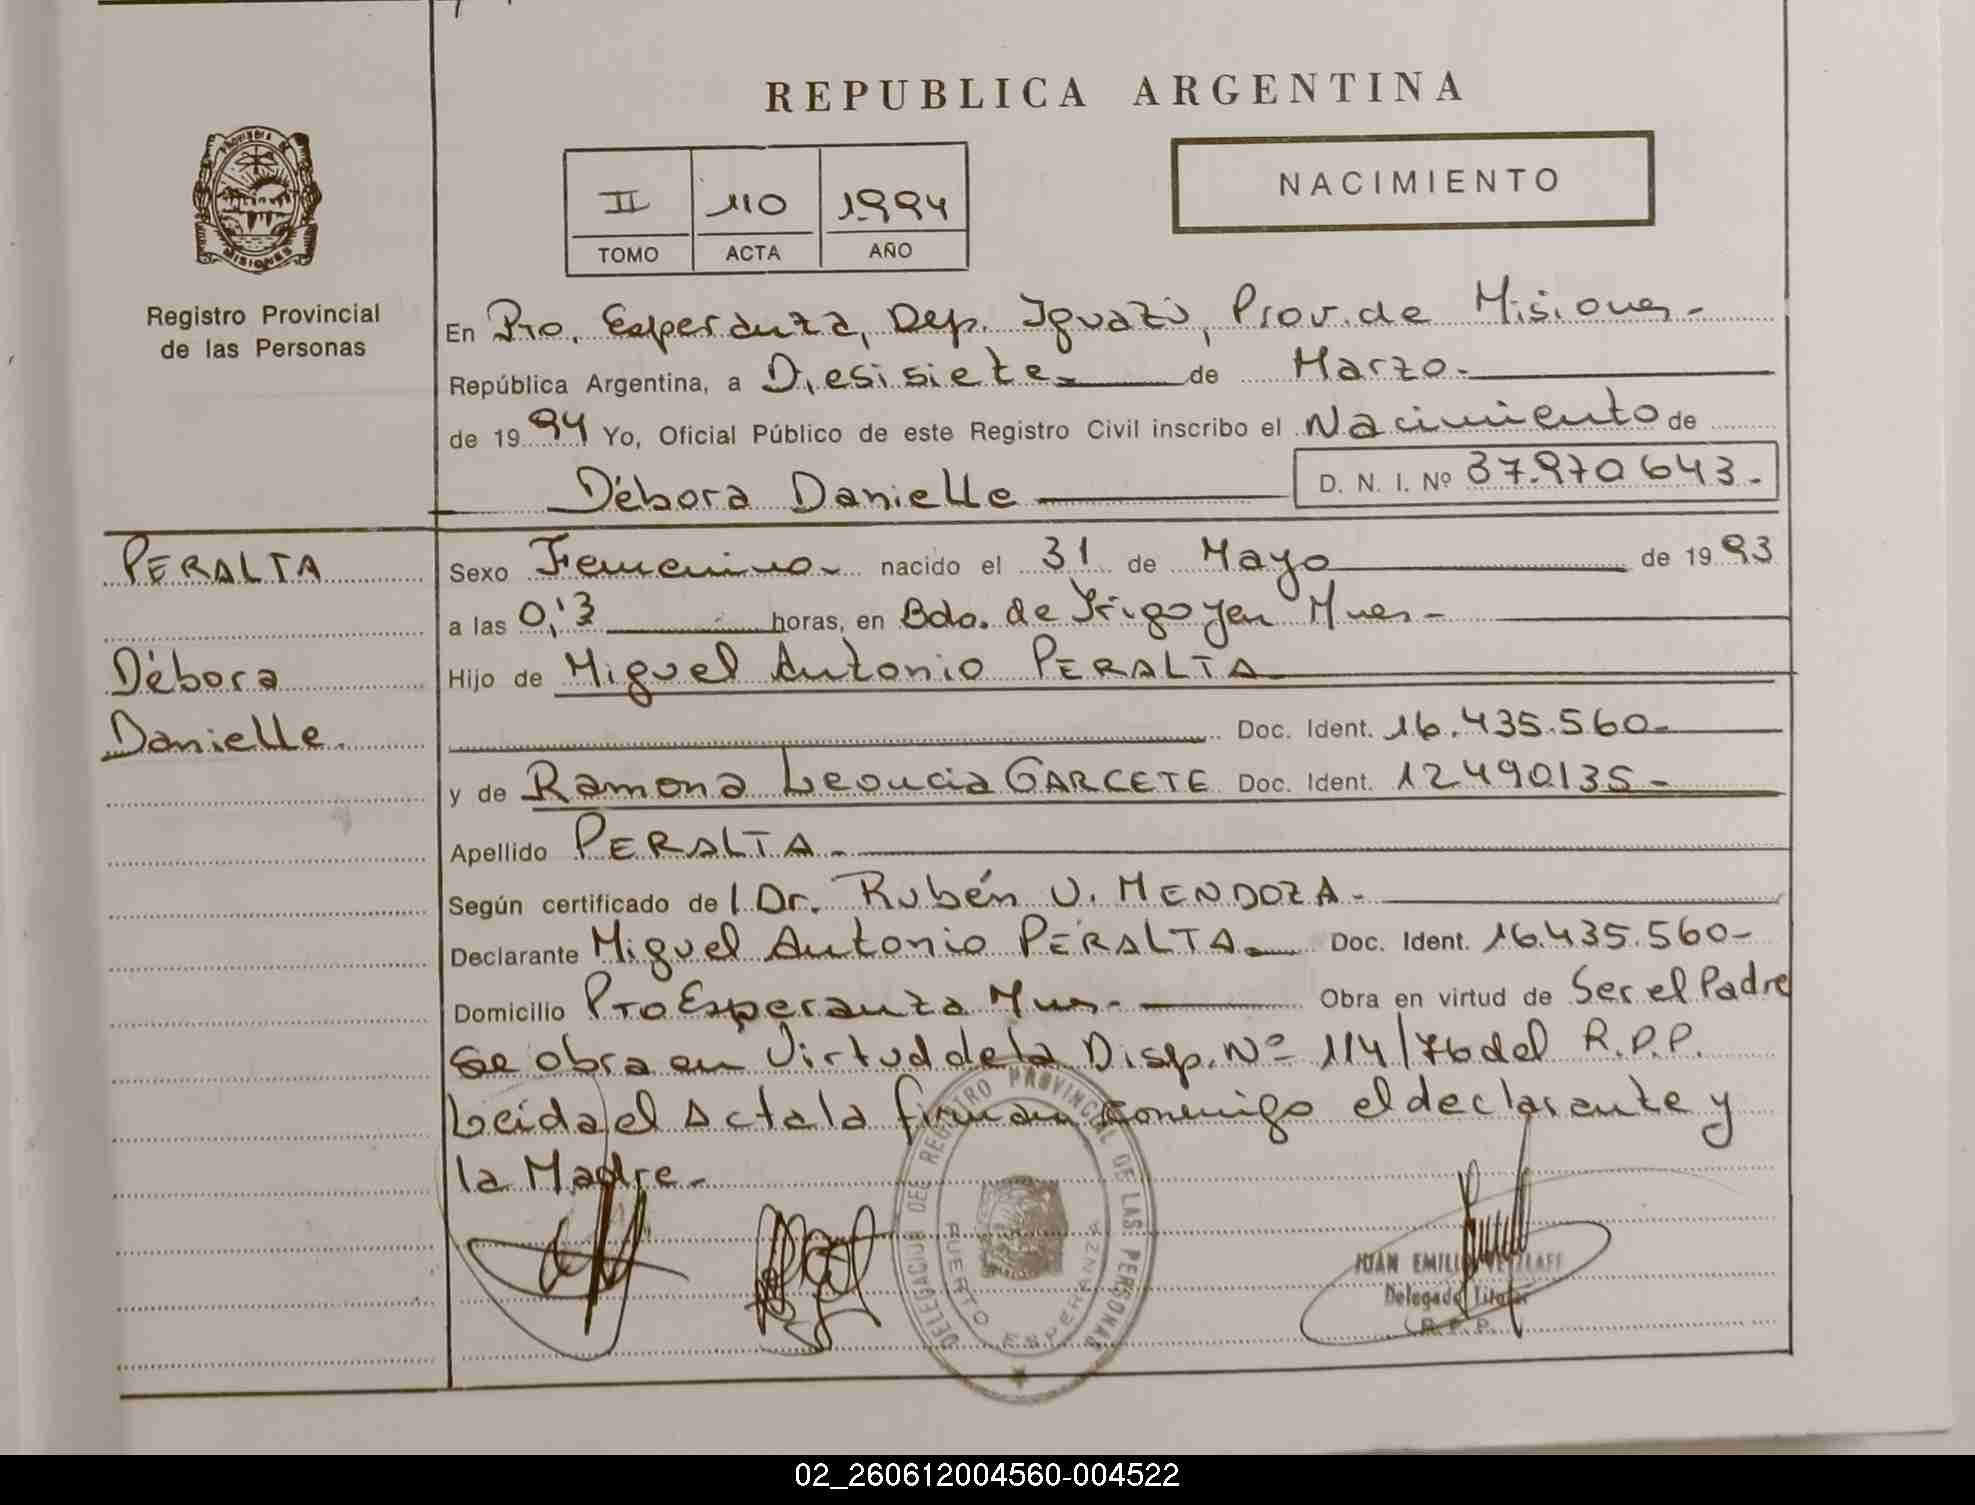 REPUBLICA ARGENTINA
PROVINCIA DE
MISIONES
Registro Provincial
de las Personas
II 110 1994
TOMO ACTA AÑO
NACIMIENTO
En Pto. Esperanza, Dep. Iguazú, Prov. de Misiones-
República Argentina, a Diesisiete- de Marzo-
de 1994 Yo, Oficial Público de este Registro Civil inscribo el Nacimiento de
Débora Danielle D. N. I. Nº 37.970643.-
PERALTA
Débora
Danielle.
Sexo Femenino- nacido el 31 de Mayo de 1993
a las 0,'3 horas, en Bdo. de Irigoyen Mnes-
Hijo de Miguel Antonio PERALTA
Doc. Ident. 16.435.560-
y de Ramona Leoncia GARCETE Doc. Ident. 12490135-
Apellido PERALTA-
Según certificado del Dr. Rubén V. MENDOZA-
Declarante Miguel Antonio PERALTA- Doc. Ident. 16.435.560-
Domicilio Pto Esperanza Mnes- Obra en virtud de Ser el Padre
Se obra en Virtud de la Disp. Nº 114/76 del R.P.P.
Leida el Acta la firman conmigo el declarante y
la Madre.-
DELEGACION DEL REGISTRO PROVINCIAL DE LAS PERSONAS
PUERTO ESPERANZA
JUAN EMILIO
Delegado Titular
R.P.P.
02_260612004560-004522